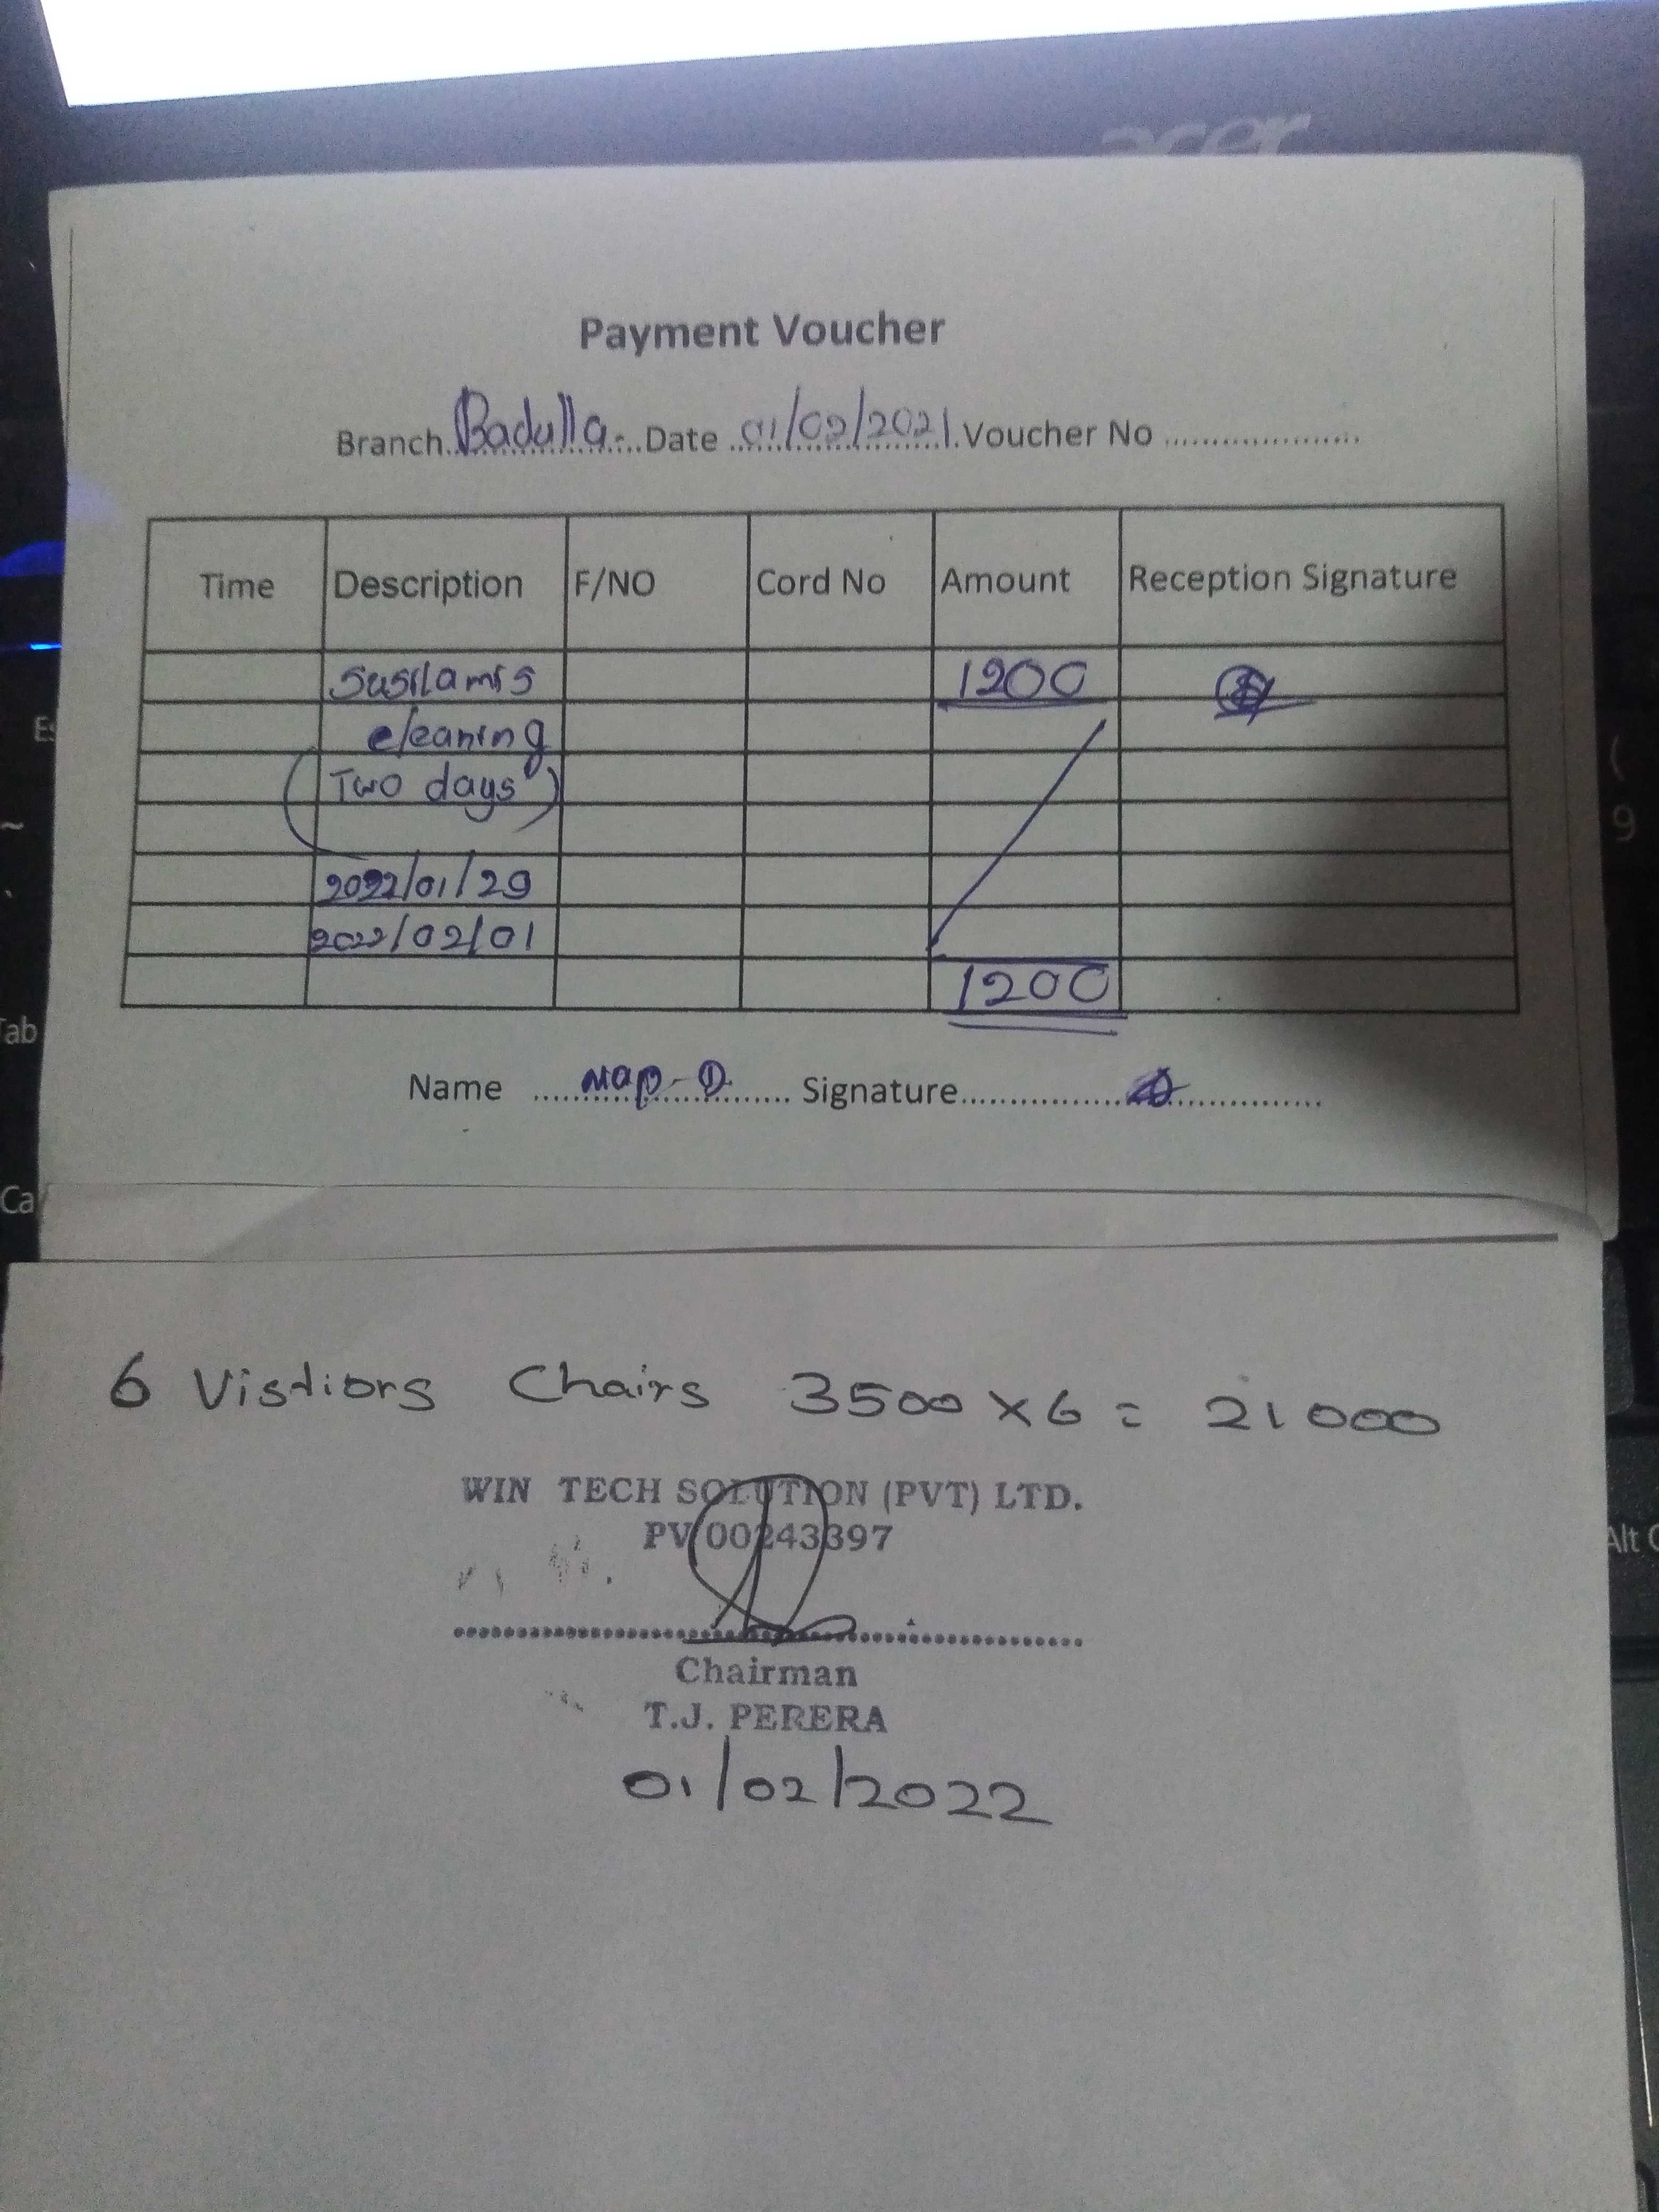 acer
Payment Voucher
Branch Badulla Date 01/02/2021 Voucher No
Time Description F/NO Cord No Amount Reception Signature
1200
cleaning
(Two days)
2022/01/29
2022/02/01
1200
Name Signature
6 Vistiors Chairs 3500 x 6 = 21000
WIN TECH SOLUTION (PVT) LTD.
PV 00243397
Chairman
T.J. PERERA
01/02/2022
Tab
9
(
~
Alt